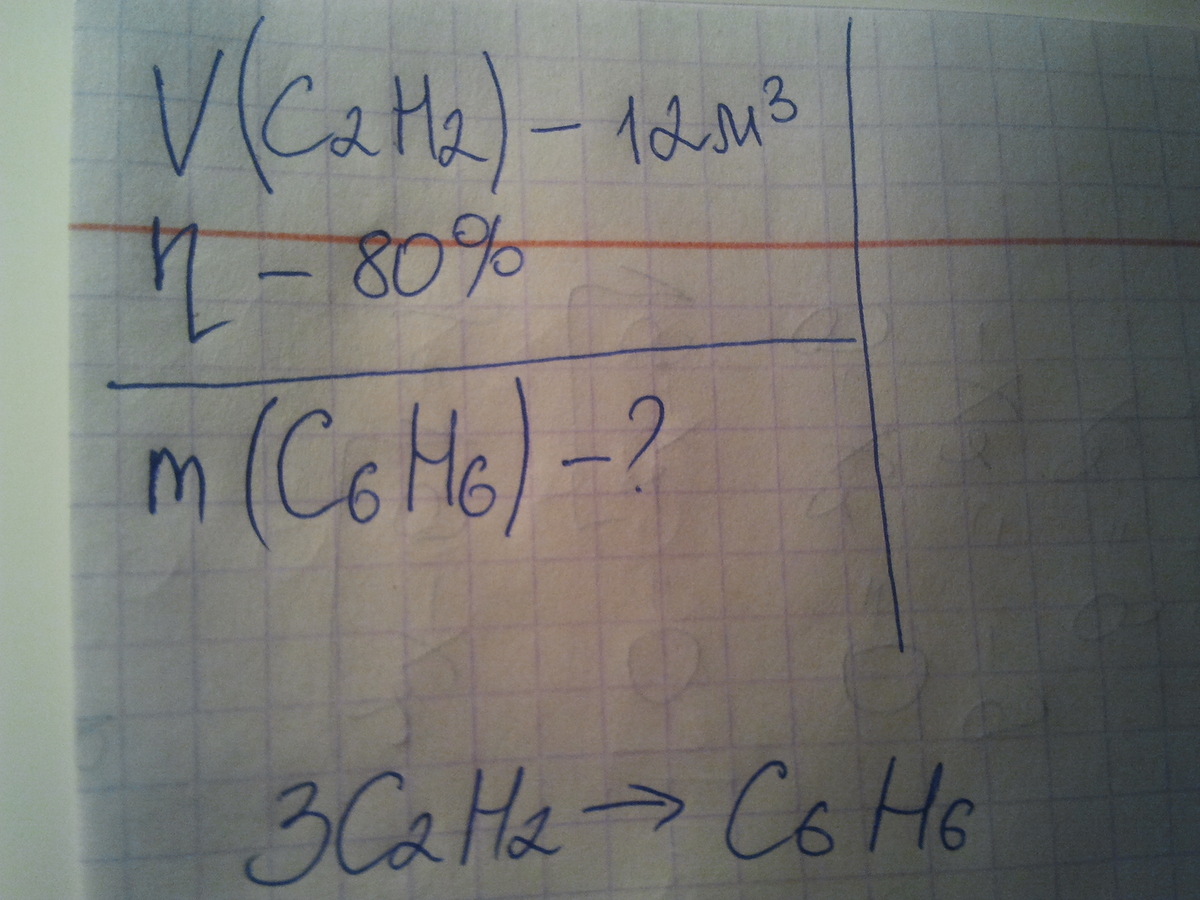 V(C₂H₂) – 12м³
η – 80%
m(C₆H₆) – ?
3C₂H₂ → C₆H₆